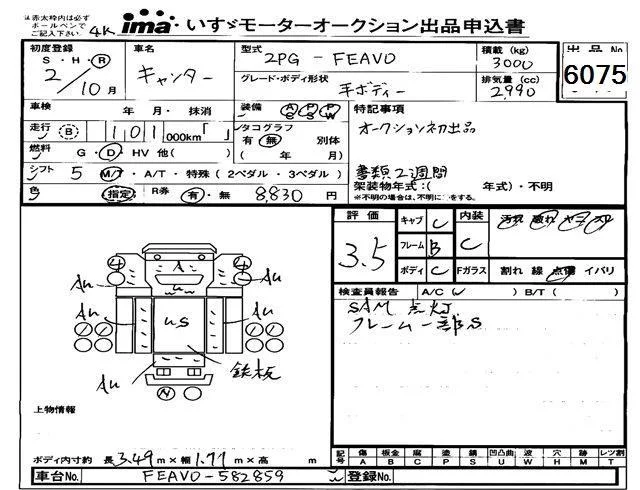 ※赤太枠内は必ず
ボールペンで
ご記入下さい。
4K
ima いすゞモーターオークション出品申込書
初度登録
S・H・R
2/10月
車名
キャンター
型式
2PG - FEAV0
積載 (kg)
3000
出品 No
6075
グレード・ボディ形状
平ボディー
排気量 (cc)
2,990
車検 年 月・ 抹消
装備 AC PS PW
特記事項
オークション初出品
走行 B 101 000km「 」
タコグラフ
有 無 別体
( 年 月)
燃料 G・D・HV 他( )
シフト 5 M/T・A/T・特殊(2ペダル・3ペダル)
書類2週間
架装物年式:( 年式)・不明
※不明の場合は、不明に○をする。
色 指定 R券 有・無 8,830 円
評価
3.5
キャブ C
フレーム B
ボディ C
内装
C
汚れ 破れ ヤニ スレ
Fガラス 割れ 線 点傷 イバリ
検査員報告 A/C( ) B/T( )
SAM 点灯
フレーム一部S
4 4
A
u
Au Au Au Au
us
鉄板
N
上物情報
ボディ内寸約 長 3.49 m×幅 1.77 m×高 m
記号 傷 A 板金 B 腐 C 塗 P 錆 S 凹凸曲 U 波 W 穴 H 跡 M レツ割 T
車台No. FEAV0-582859
登録No.